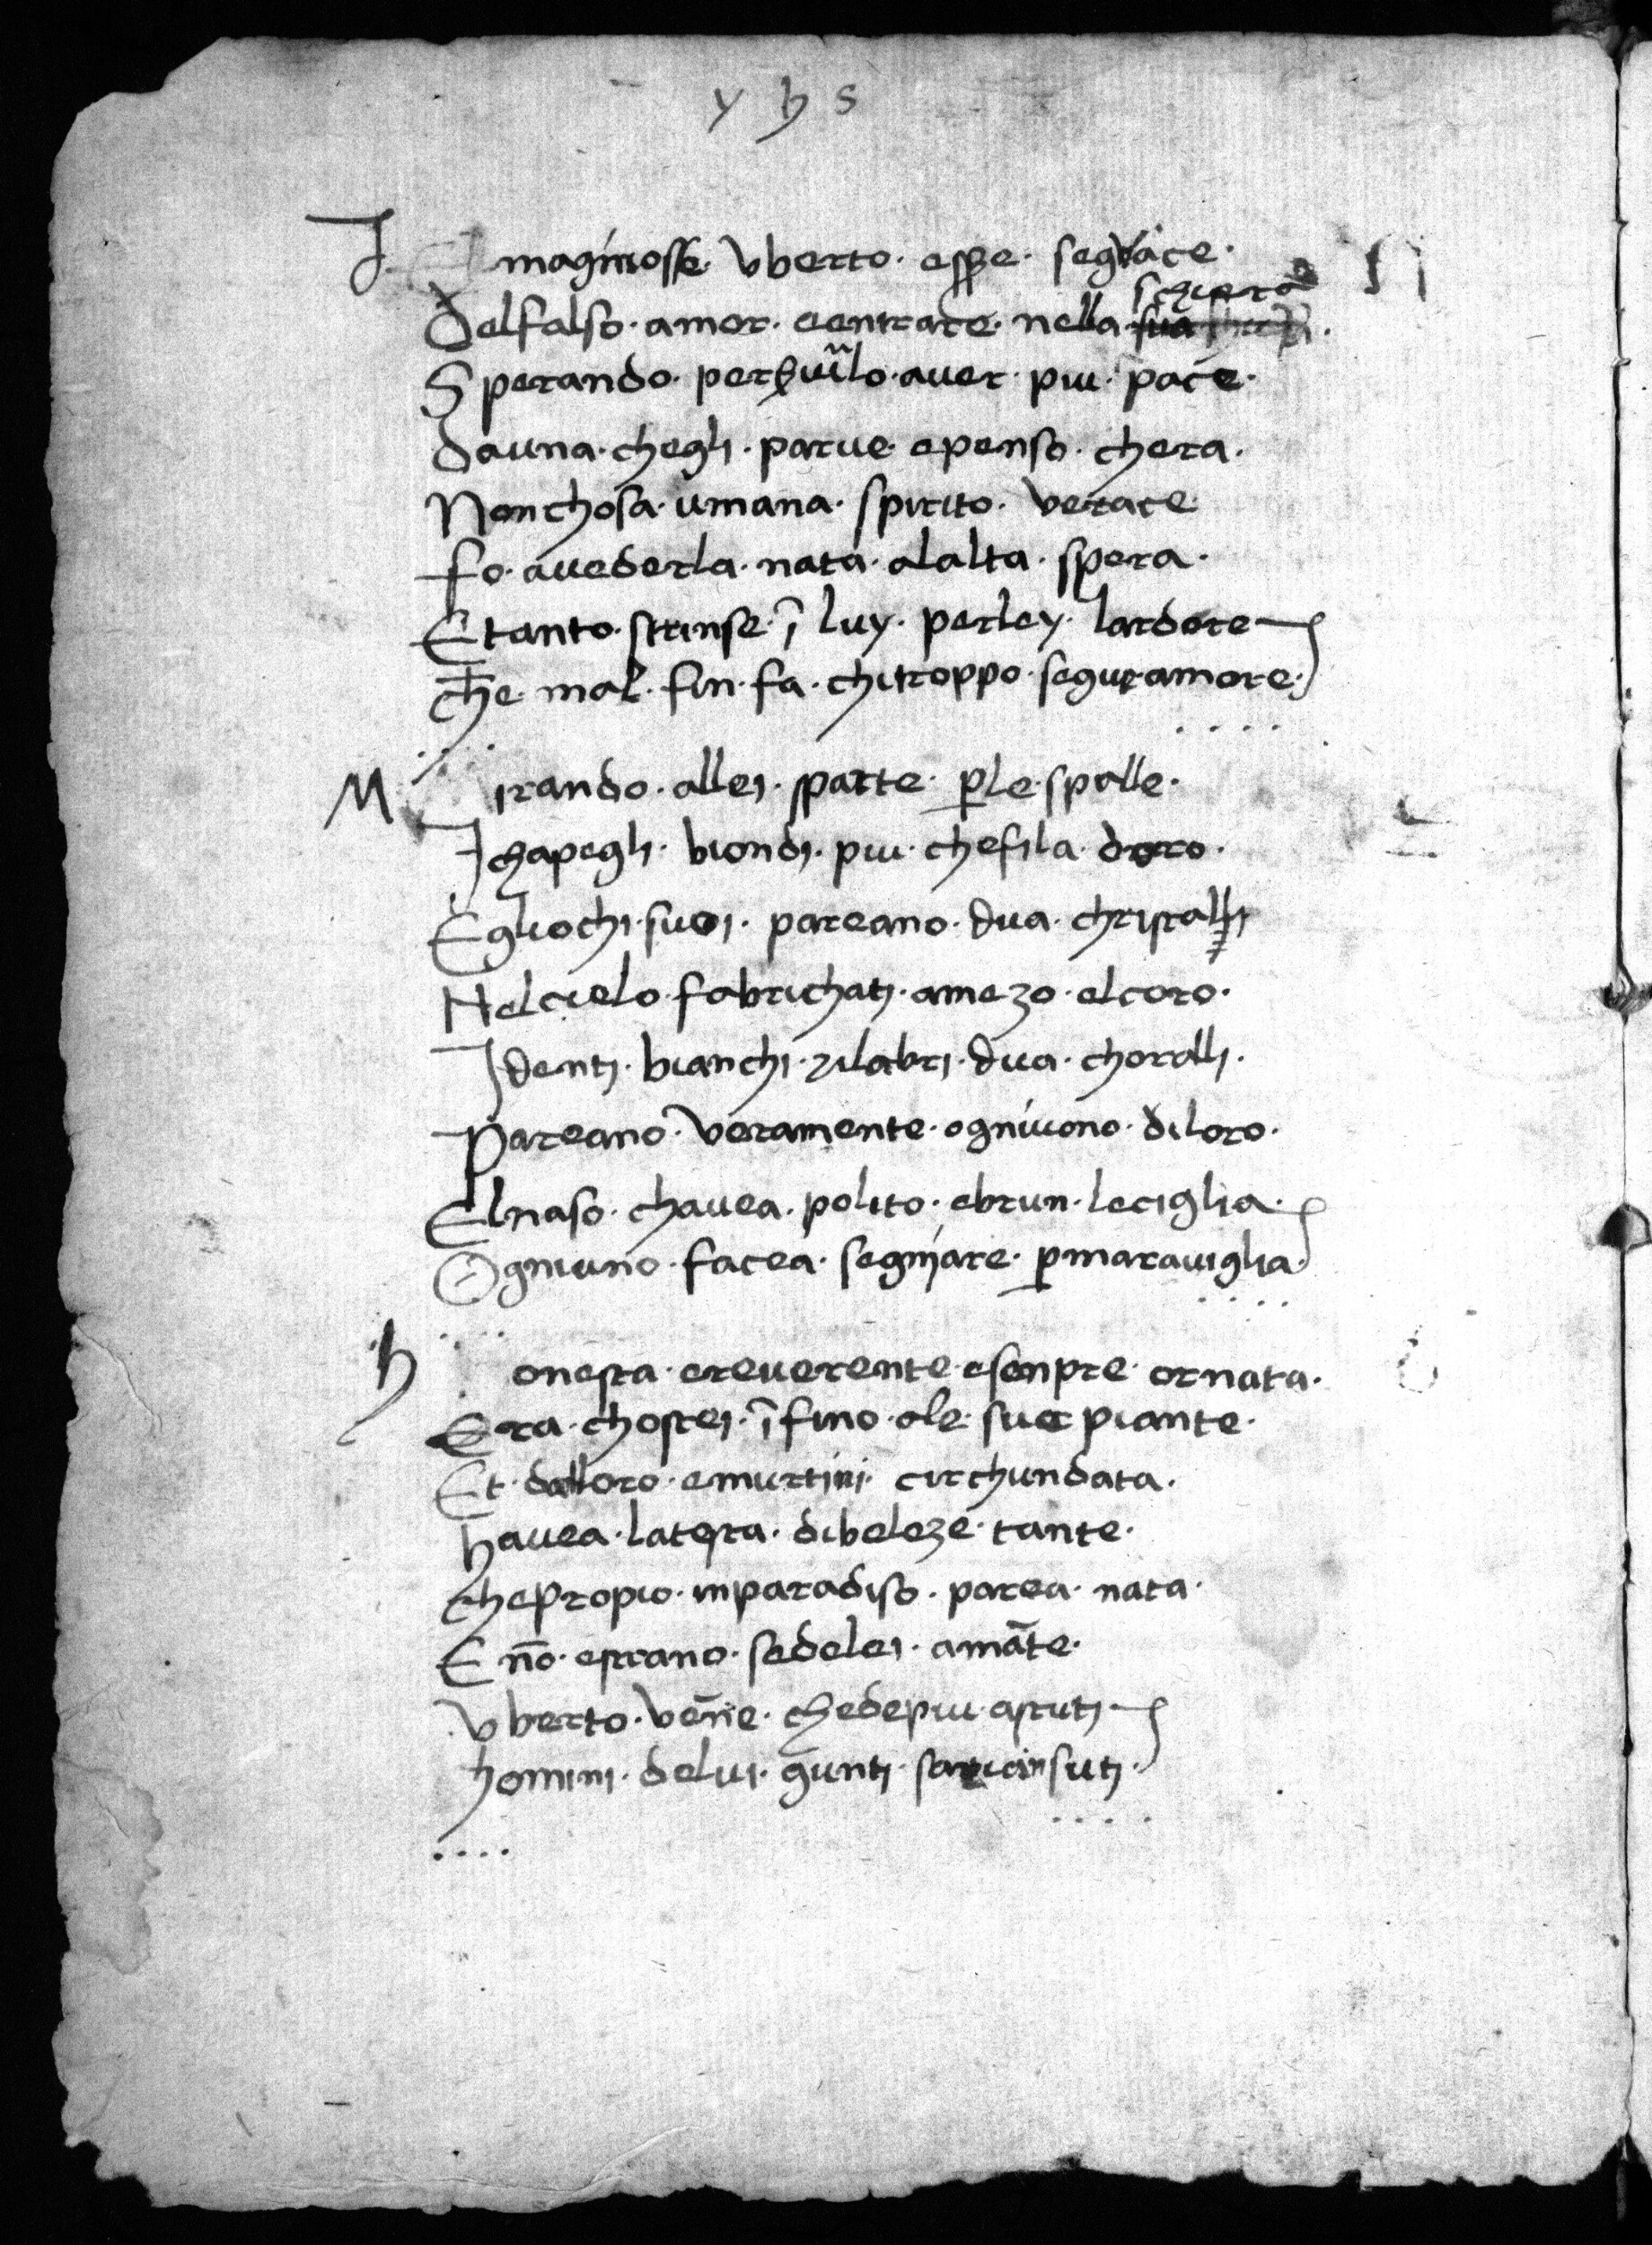 yhs
Imaginosse · vberto · essere · seguace ·
schiera
Delfalso · amor · eentrare · nella sua
Sperando · per · aver · piu · pace ·
Dauna · chegli · parue · epenso · chera ·
Nonchosa · umana · spirito · verace
fo · auederla · nata · alalta · spera ·
Etanto · strinse · ī luy · perley · lardore
che · mal · fin · fa · chitroppo · seguramore ·
Mirando · allei · sparte · ꝑle · spalle ·
Ichapegli · biondi · piu · chefila · doro ·
Egliochi · suoi · pareano · dua · christalli
Nelcielo · fabrichati · amezo · elcoro ·
Identi · bianchi · zilabri · dua · choralli ·
Pareano · veramente · ogniuono · diloro ·
Elnaso · chauea · polito · ebrun · leciglia ·
Ogniuno · facea · segniare · ꝑmarauiglia ·
honesta · ereuerente · esenpre · ornata ·
Era · chostei · īfino · ale · sue piante ·
Et · dalloro · emurtini · circhundata ·
hauea · latesta · dibeleze · tante ·
chepropio · inparadiso · parea · nata ·
E nō · estrano · sedelei · amāte ·
vberto · vēne · chedepiu · astuti
homini · delui · gunti